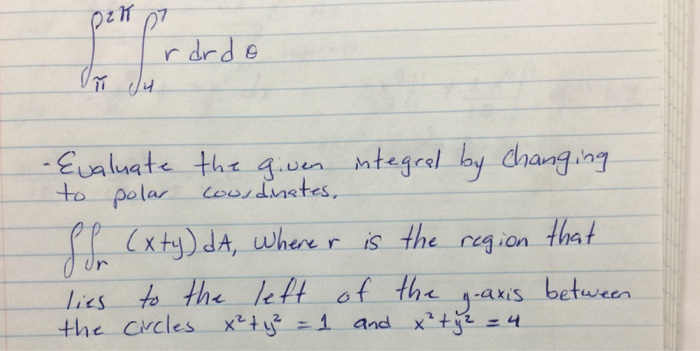 ∫_π^2π ∫_4^7 r dr dθ
- Evaluate the given integral by changing
to polar coordinates.
∫∫_r (x+y) dA, where r is the region that
lies to the left of the y-axis between
the circles x²+y² = 1 and x²+y² = 4